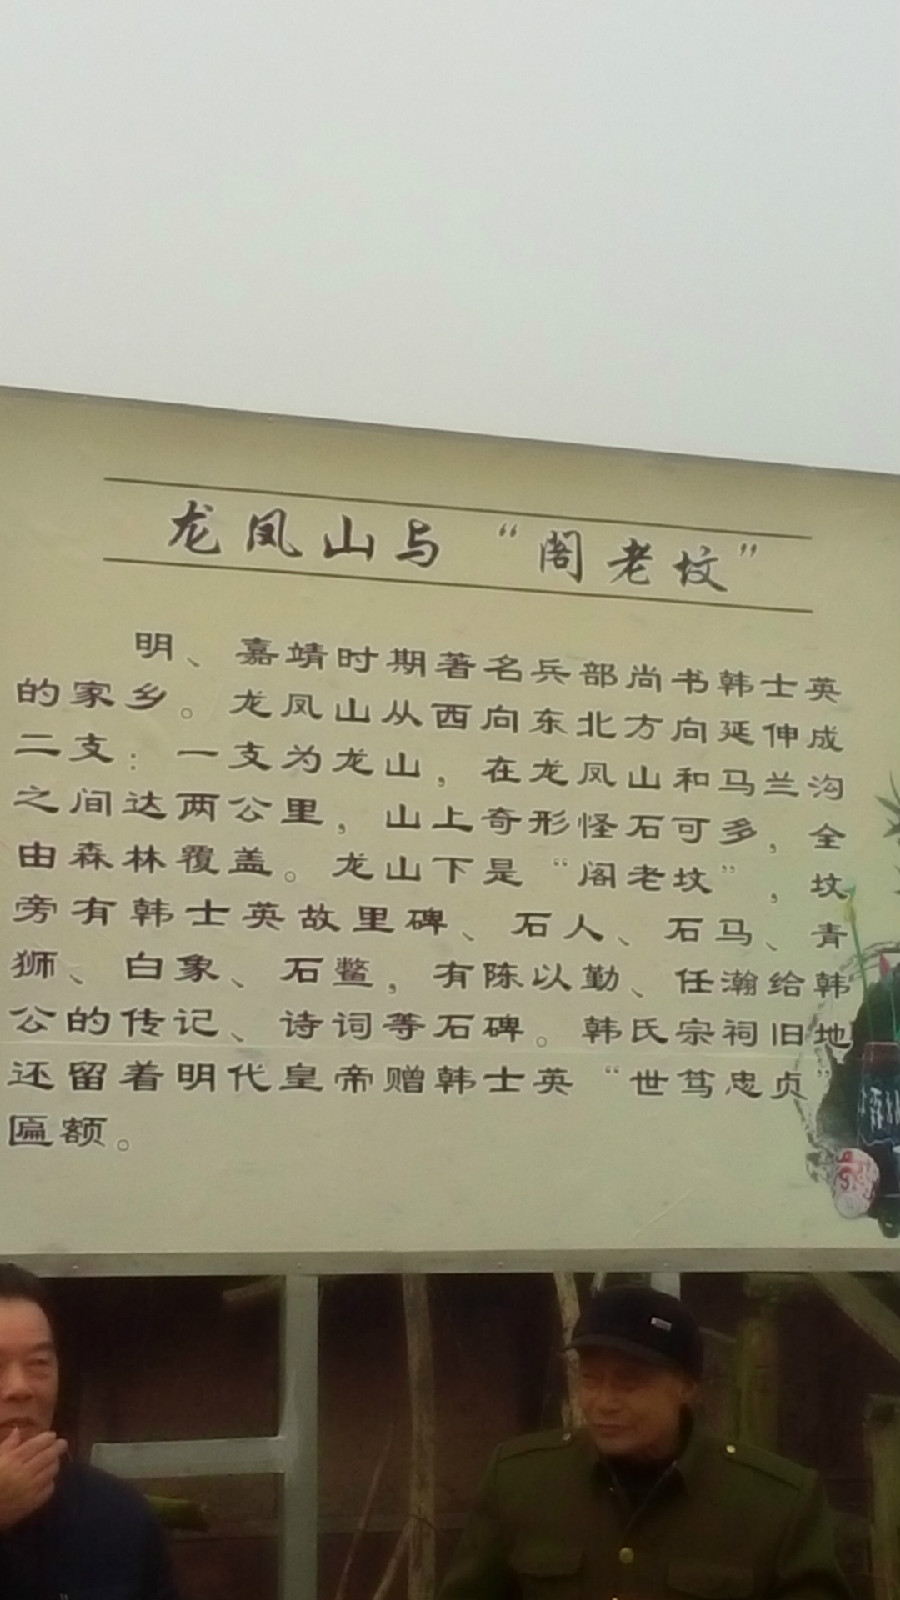 龙凤山与“阁老坟”
明、嘉靖时期著名兵部尚书韩士英
的家乡。龙凤山从西向东北方向延伸成
二支：一支为龙山，在龙凤山和马兰沟
之间达两公里，山上奇形怪石可多，全
由森林覆盖。龙山下是“阁老坟”，坟
旁有韩士英故里碑、石人、石马、青
狮、白象、石鳖，有陈以勤、任瀚给韩
公的传记、诗词等石碑。韩氏宗祠旧地
还留着明代皇帝赠韩士英“世笃忠贞”
匾额。